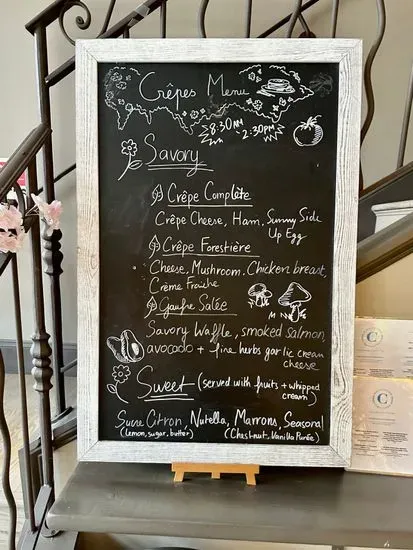 Crêpes Menu
8:30AM
2:30PM
Savory
Crêpe Complète
Crêpe Cheese, Ham, Sunny Side
Up Egg
Crêpe Forestière
Cheese, Mushroom, Chicken breast,
Crème Fraîche
Gaufre Salée
Savory Waffle, smoked salmon,
avocado + fine herbs garlic cream
cheese
Sweet (served with fruits + whipped
cream)
Sucre Citron, Nutella, Marrons, Seasonal
(Lemon, sugar, butter) (Chestnut, Vanilla Purée)